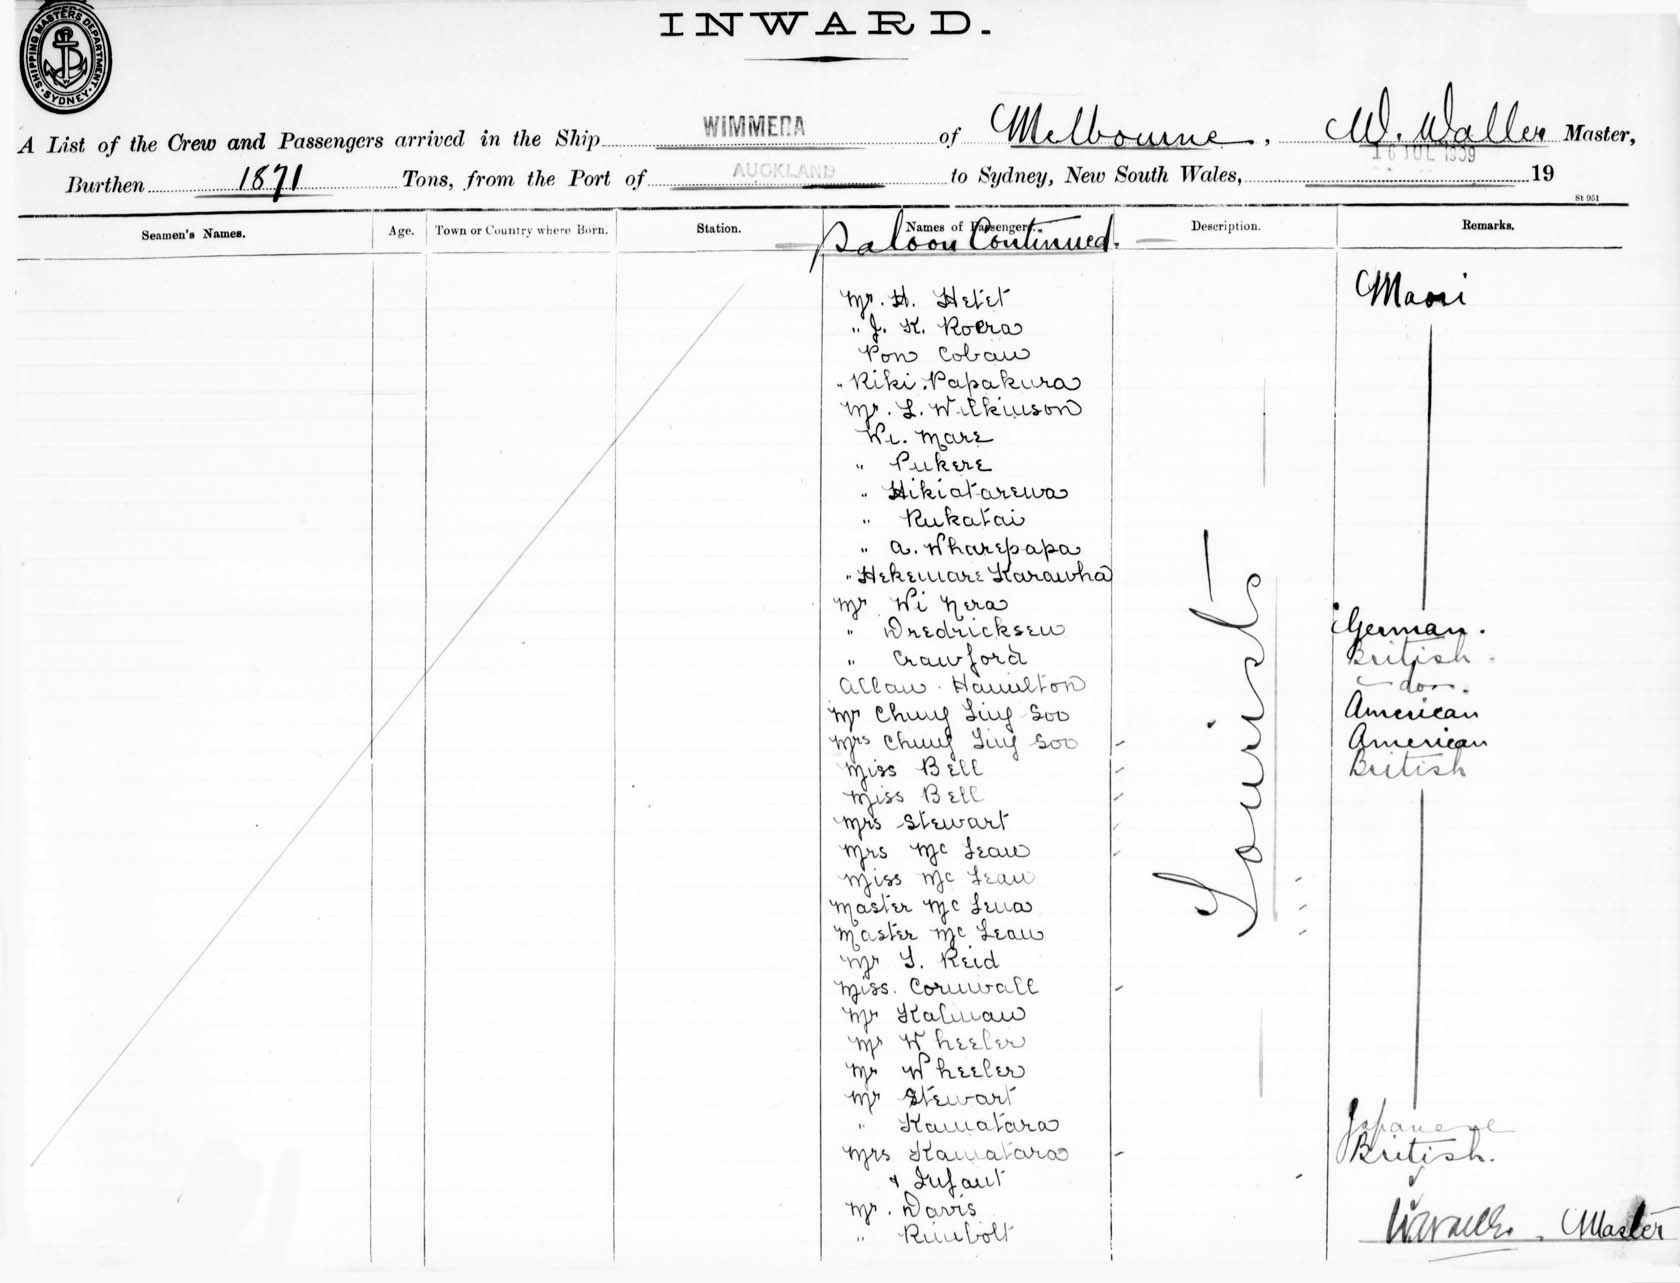 SHIPPING MASTERS DEPARTMENT
SYDNEY
INWARD.
A List of the Crew and Passengers arrived in the Ship WIMMERA of Melbourne, W. Waller Master,
Burthen 1871 Tons, from the Port of AUCKLAND to Sydney, New South Wales, 16 JUL 1909 19
St 951
Seamen's Names. Age. Town or Country where Born. Station. Names of Passengers. Description. Remarks.
Saloon Continued.
Mr. H. Hetet Maori
" J. K. Roera
Pon Coban
" Kiki Papakura
Mr. L. Wilkinson
Wi. Mare
" Pukere
" Hikiatarewa
" Rukatai
" A. Wharepapa
" Hekemare Karawha
Mr Wi Nera
" Dredricksen German.
" Crawford British
Allan Hamilton do.
Mr Chung Ling Soo American
Mrs Chung Ling Soo American
Miss Bell British
Miss Bell
Mrs Stewart
Mrs McLean
Miss McLean
Master McLena
Master McLean
Mr T. Reid
Miss. Cornwall
Mr Kalman
Mr Wheeler
Mr Wheeler
Mr Stewart
" Kamatara Japanese
Mrs Kamatara British.
& Infant
Mr. Davis
" Rumbolt
Tourists
Master